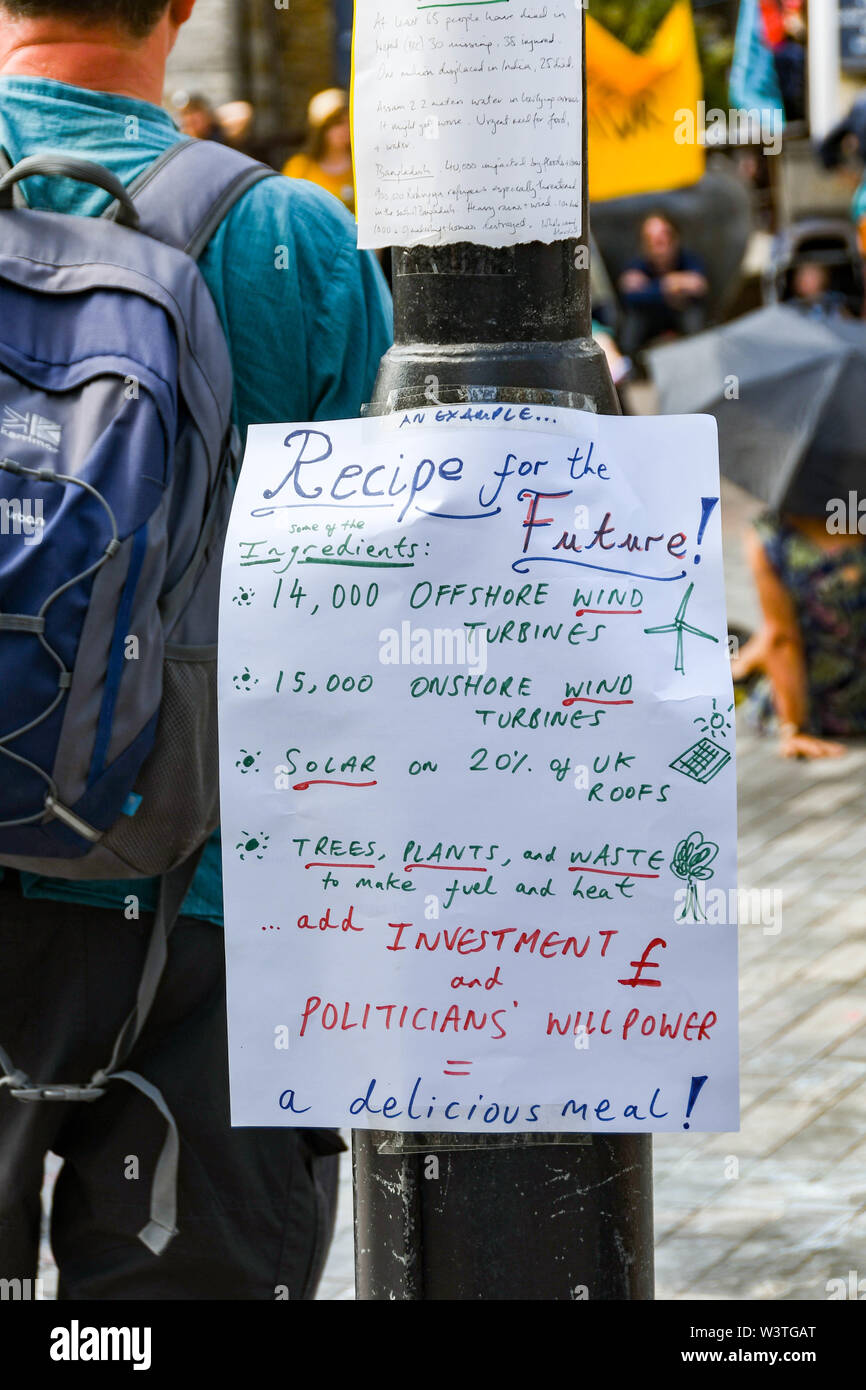 At least 65 people have died in
Nepal (rec) 30 missing, 35 injured.
One million displaced in India, 25 died.
Assam 2.2 meters water in low lying areas
It might get worse. Urgent need for food,
+ water.
Bangladesh. 40,000 impacted by floods +
900,000 Rohingya refugees especially threatened
in the south of Bangladesh. Heavy rains + wind.
1000s of makeshift homes destroyed.
AN EXAMPLE...
Recipe for the
Future!
some of the
Ingredients:
14,000 OFFSHORE WIND
TURBINES
15,000 ONSHORE WIND
TURBINES
SOLAR on 20% of UK
ROOFS
TREES, PLANTS, and WASTE
to make fuel and heat
... add INVESTMENT £
and
POLITICIANS' WILLPOWER
=
a delicious meal!
karrimor
urban
alamy
Image ID: W3TGAT
www.alamy.com